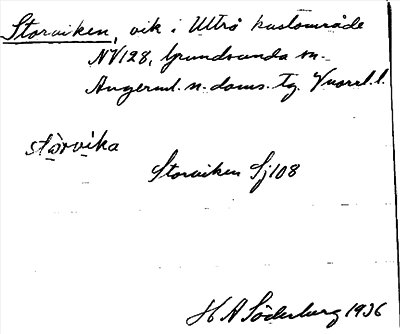 Storviken, vik i Ultrå kustområde
NV128, Grundsunda sn.
Ångerml. n. doms. tg. Vnorrl. l.
stòrvika
Storviken Sj108
H A Söderberg 1936